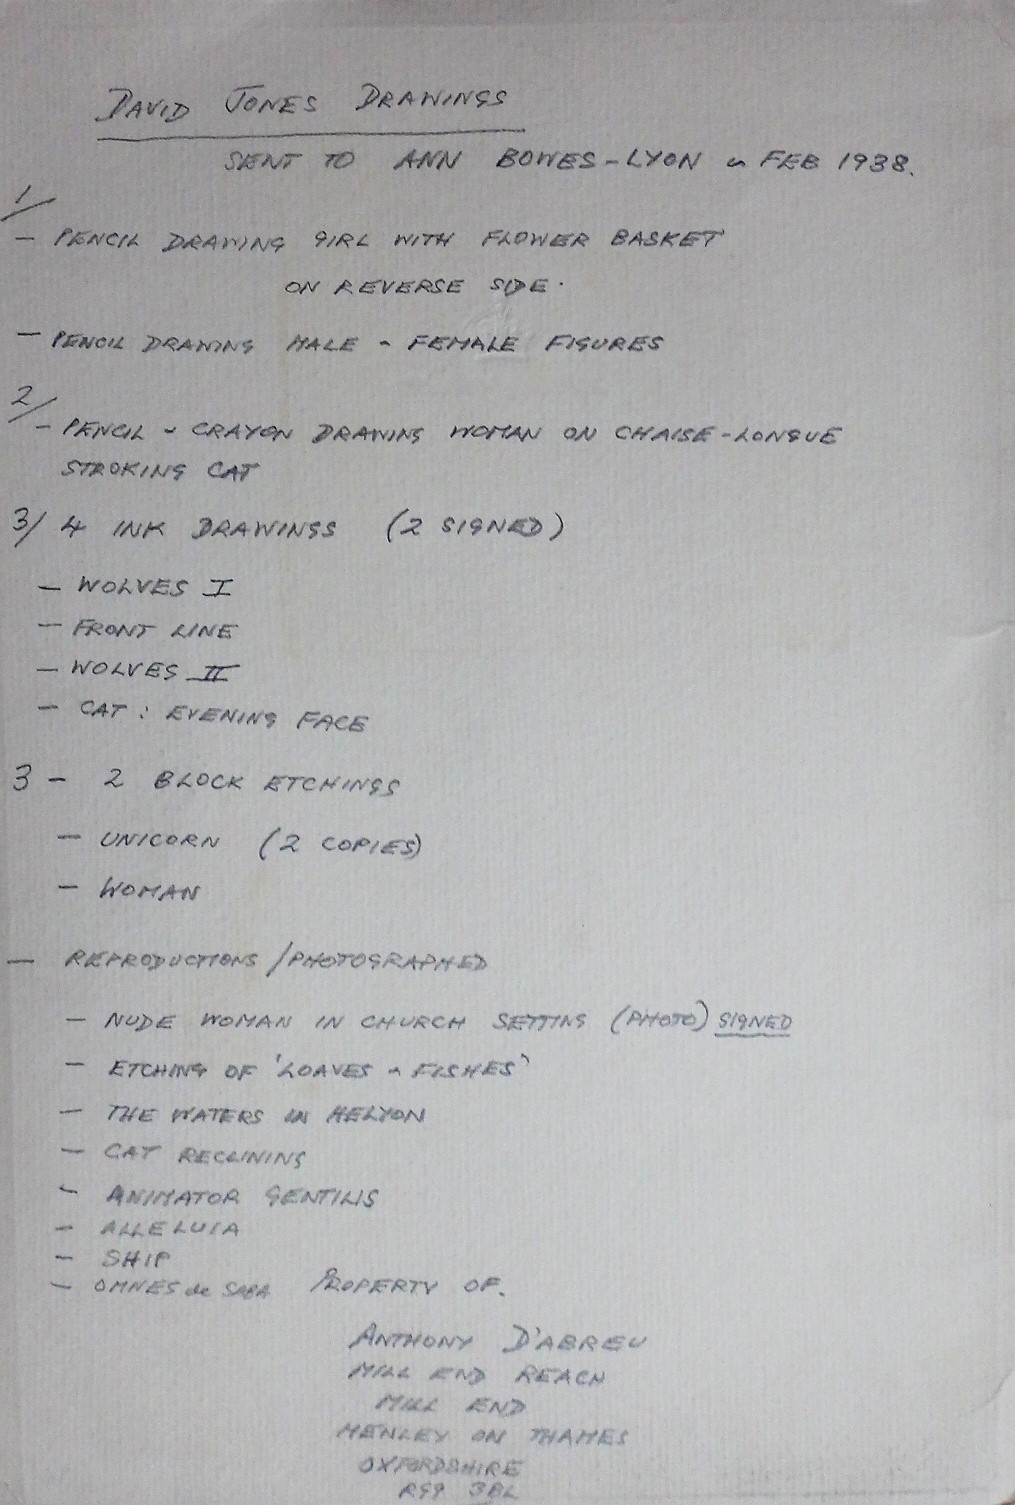 DAVID JONES DRAWINGS
SENT TO ANN BOWES-LYON ~ FEB 1938.
1/
- PENCIL DRAWING GIRL WITH FLOWER BASKET
ON REVERSE SIDE.
- PENCIL DRAWING MALE ~ FEMALE FIGURES
2/
- PENCIL ~ CRAYON DRAWING WOMAN ON CHAISE-LONGUE
STROKING CAT
3/ 4 INK DRAWINGS (2 SIGNED)
- WOLVES I
- FRONT LINE
- WOLVES II
- CAT: EVENING FACE
3 - 2 BLOCK ETCHINGS
- UNICORN (2 COPIES)
- WOMAN
- REPRODUCTIONS/PHOTOGRAPHED
- NUDE WOMAN IN CHURCH SETTING (PHOTO) SIGNED
- ETCHING OF 'LOAVES ~ FISHES'
- THE WATERS IN HELYON
- CAT RECLINING
- ANIMATOR GENTILIS
- ALLELUIA
- SHIP
- OMNES de SABA PROPERTY OF.
ANTHONY D'ABREU
MILL END REACH
MILL END
HENLEY ON THAMES
OXFORDSHIRE
RG9 3BL